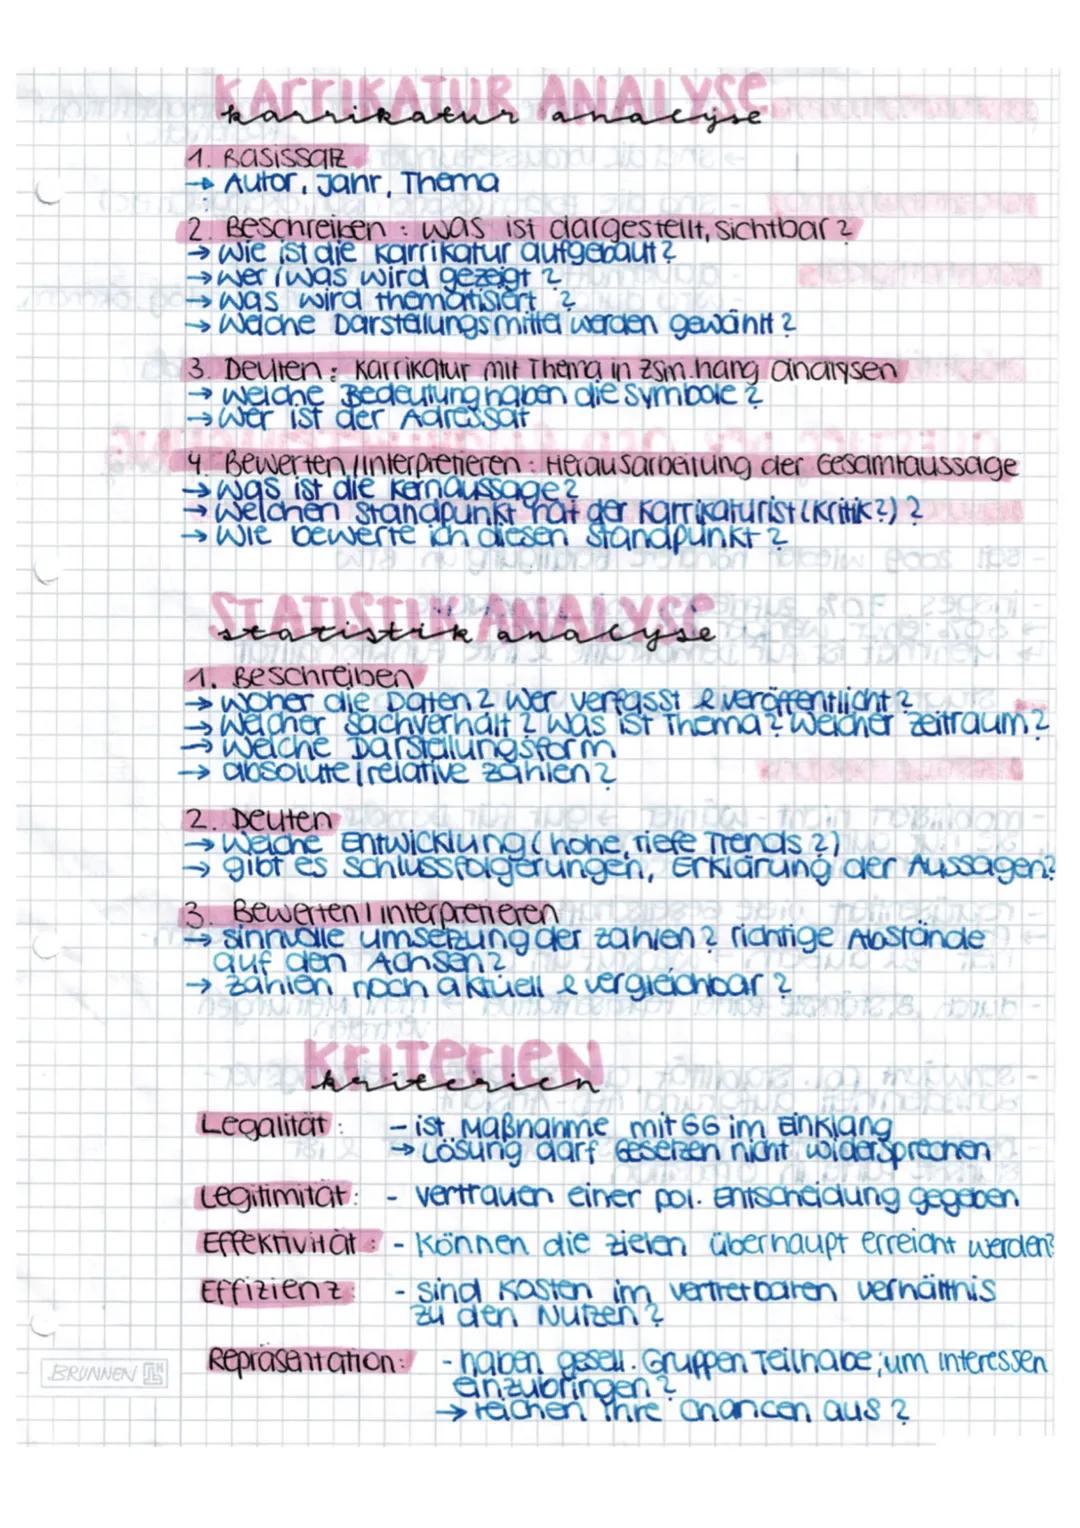 KARRIKATUR ANALYSE
karrikatur analyse
1. Basissatz
→ Autor, Jahr, Thema
2. Beschreiben : was ist dargestellt, sichtbar ?
→ wie ist die Karrikatur aufgebaut ?
→ wer / was wird gezeigt ?
→ was wird thematisiert ?
→ Welche Darstellungsmittel werden gewählt ?
3. Deuten : Karrikatur mit Thema in Zsm.hang analysen
→ welche Bedeutung haben die Symbole ?
→ wer ist der Adressat
4. Bewerten / interpretieren : Herausarbeitung der Gesamtaussage
→ was ist die Kernaussage ?
→ welchen Standpunkt hat der Karrikaturist (Kritik ?) ?
→ wie bewerte ich diesen Standpunkt ?
STATISTIK ANALYSE
statistik analyse
1. Beschreiben
→ woher die Daten ? wer verfasst & veröffentlicht ?
→ welcher Sachverhalt ? was ist Thema ? welcher Zeitraum ?
→ welche Darstellungsform
→ absolute / relative zahlen ?
2. Deuten
→ welche Entwicklung ( hohe, tiefe Trends ?)
→ gibt es Schlussfolgerungen, Erklärung der Aussagen ?
3. Bewerten / interpretieren
→ sinnvolle umsetzung der zahlen ? richtige Abstände
auf den Achsen ?
→ zahlen noch aktuell & vergleichbar ?
KRITERIEN
kriterien
Legalität : - ist Maßnahme mit GG im Einklang
→ Lösung darf Gesetzen nicht widersprechen
Legitimität : - vertrauen einer pol. Entscheidung gegeben
Effektivität : - können die zielen überhaupt erreicht werden ?
Effizienz : - sind Kosten im vertretbaren verhältnis
zu den Nutzen ?
Repräsentation : - haben gesell. Gruppen Teilhabe, um interessen
einzubringen ?
→ reichen ihre chancen aus ?
BRUNNEN